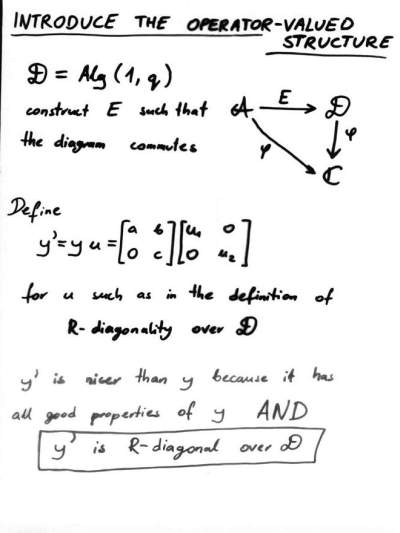 INTRODUCE THE OPERATOR-VALUED
STRUCTURE
𝒟 = Alg (1, q)
construct E such that
the diagram commutes
A E 𝒟
φ φ
ℂ
Define
y' = y u = [a b 0 c] [u₁ 0 0 u₂]
for u such as in the definition of
R-diagonality over 𝒟
y' is nicer than y because it has
all good properties of y AND
y' is R-diagonal over 𝒟